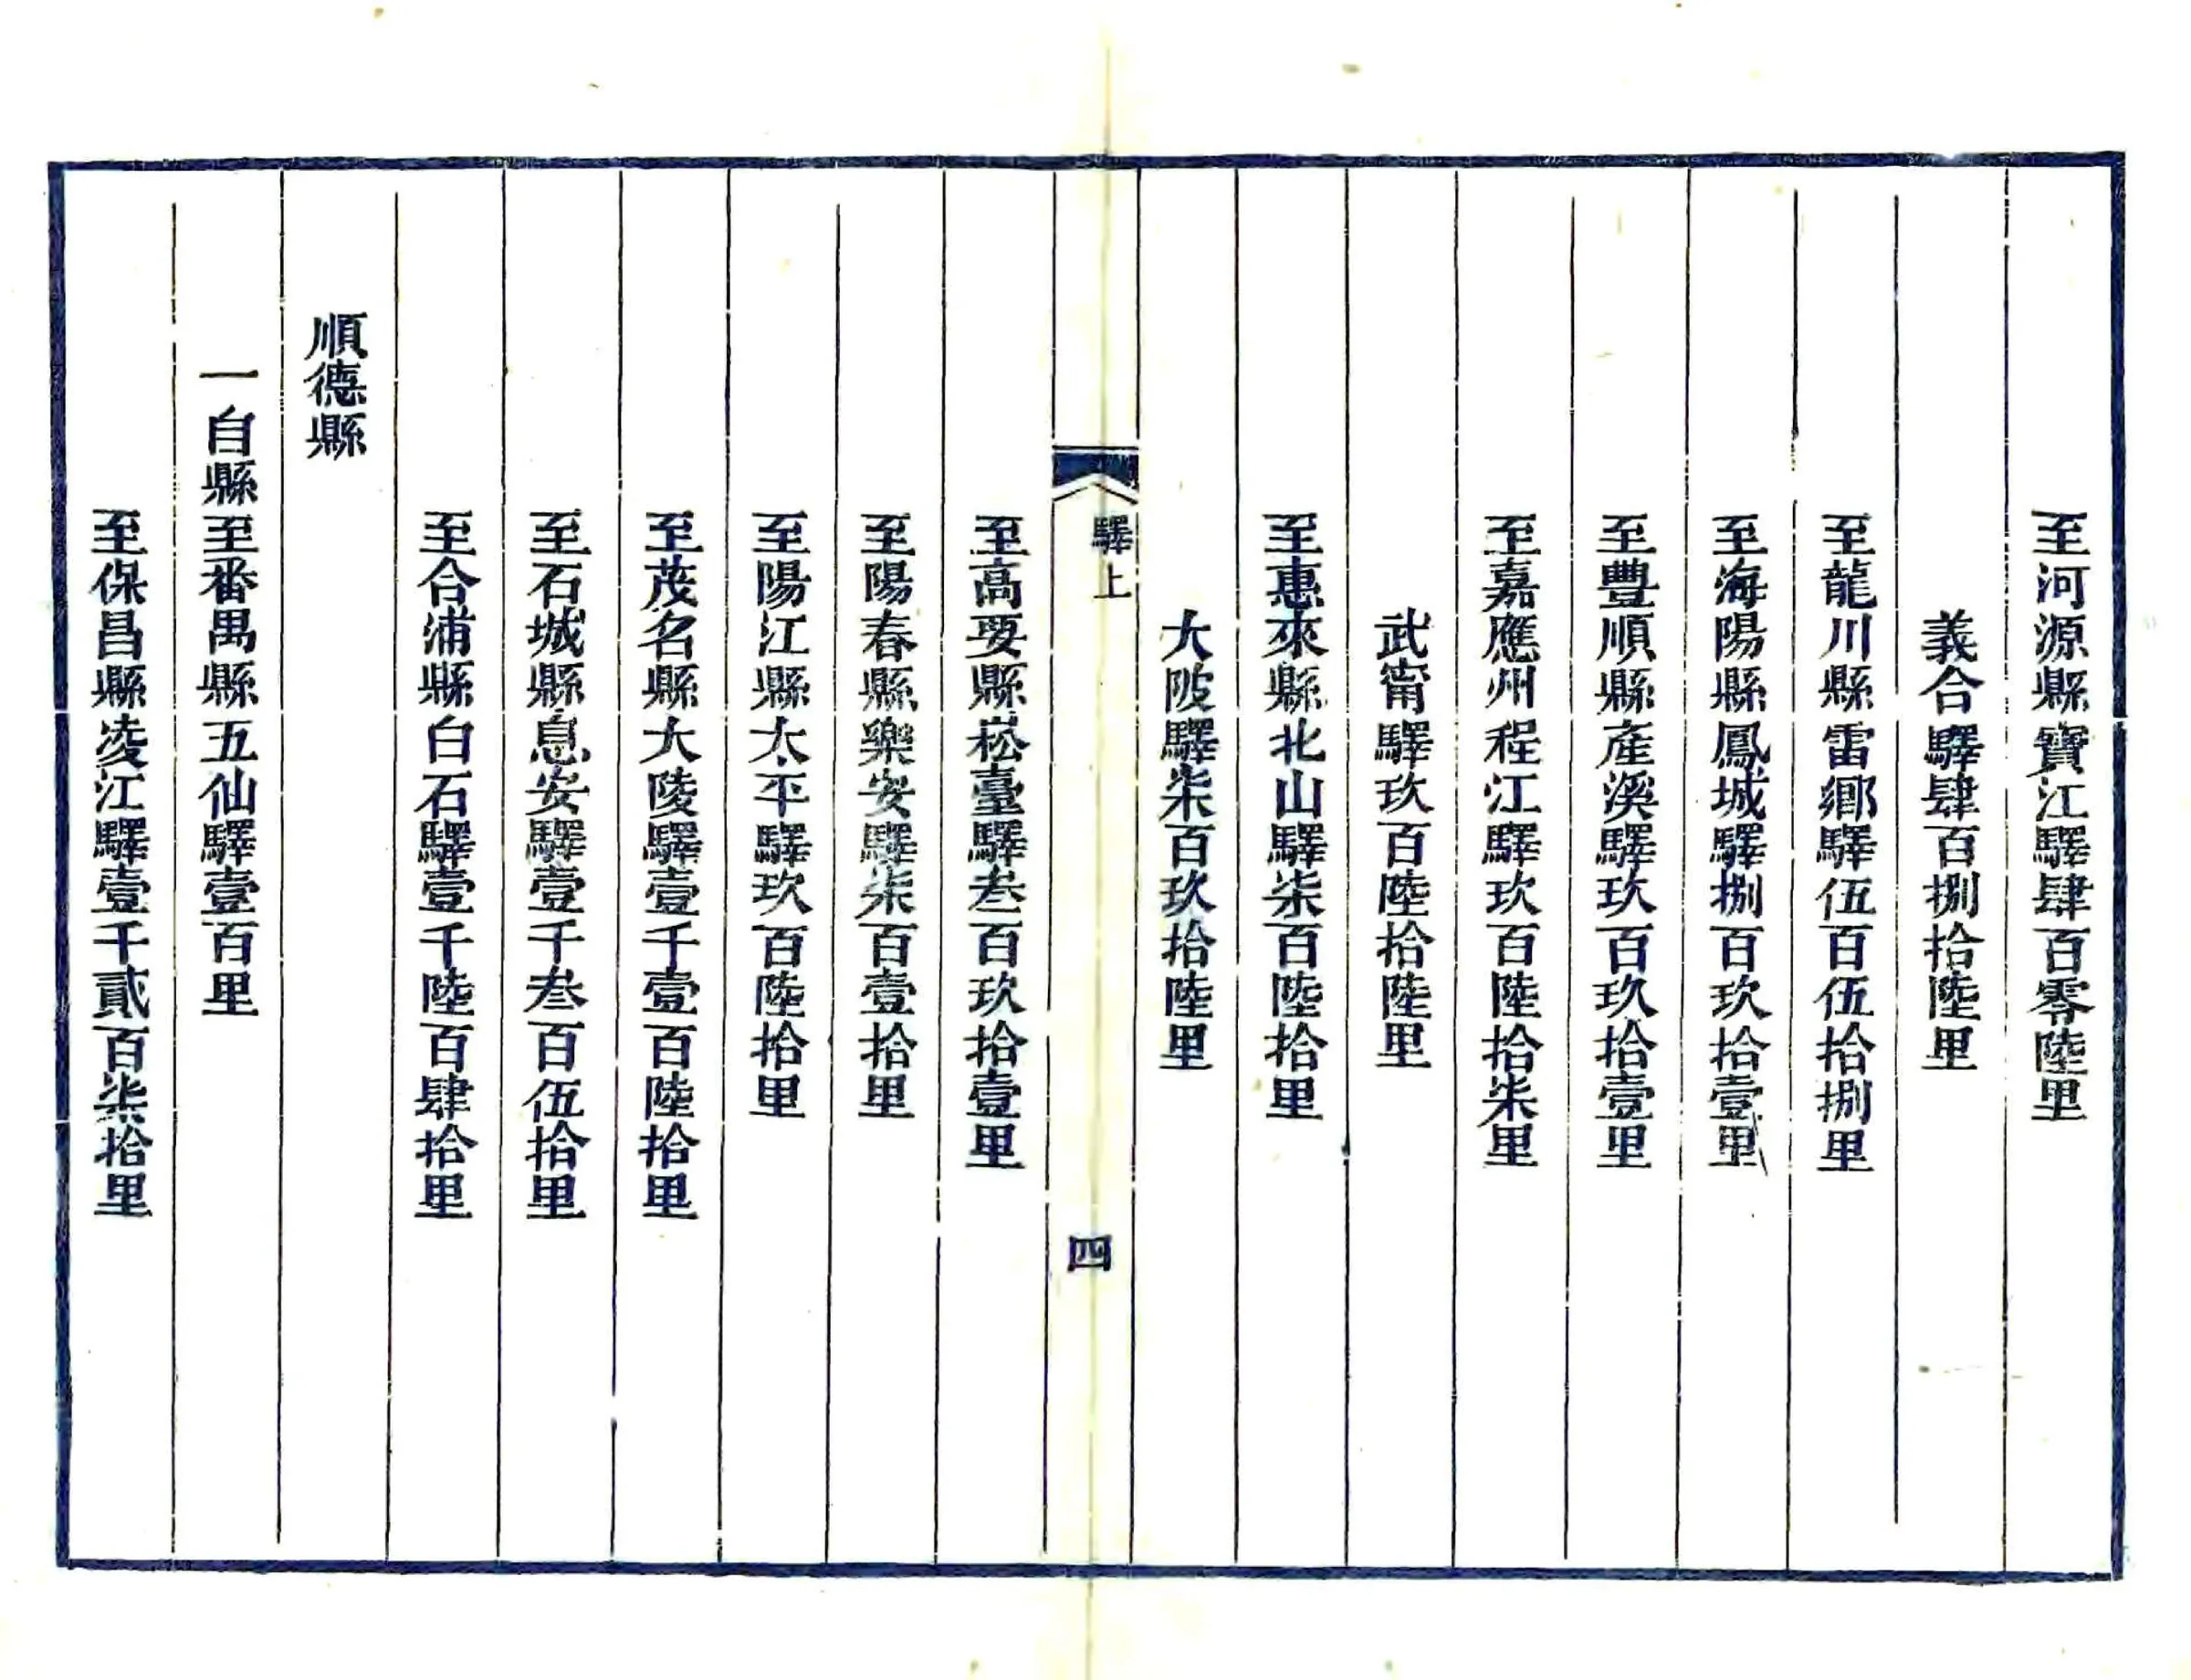 至河源縣寶江驛肆百零陸里
義合驛肆百捌拾陸里
至龍川縣雷鄉驛伍百伍拾捌里
至海陽縣鳳城驛捌百玖拾壹里
至豐順縣產溪驛玖百玖拾壹里
至嘉應州程江驛玖百陸拾柒里
武甯驛玖百陸拾陸里
至惠來縣北山驛柒百陸拾里
大陂驛柒百玖拾陸里
驛上
四
至高要縣崧臺驛叁百玖拾壹里
至陽春縣樂安驛柒百壹拾里
至陽江縣太平驛玖百陸拾里
至茂名縣大陵驛壹千壹百陸拾里
至石城縣息安驛壹千叁百伍拾里
至合浦縣白石驛壹千陸百肆拾里
順德縣
一自縣至番禺縣五仙驛壹百里
至保昌縣凌江驛壹千貳百柒拾里